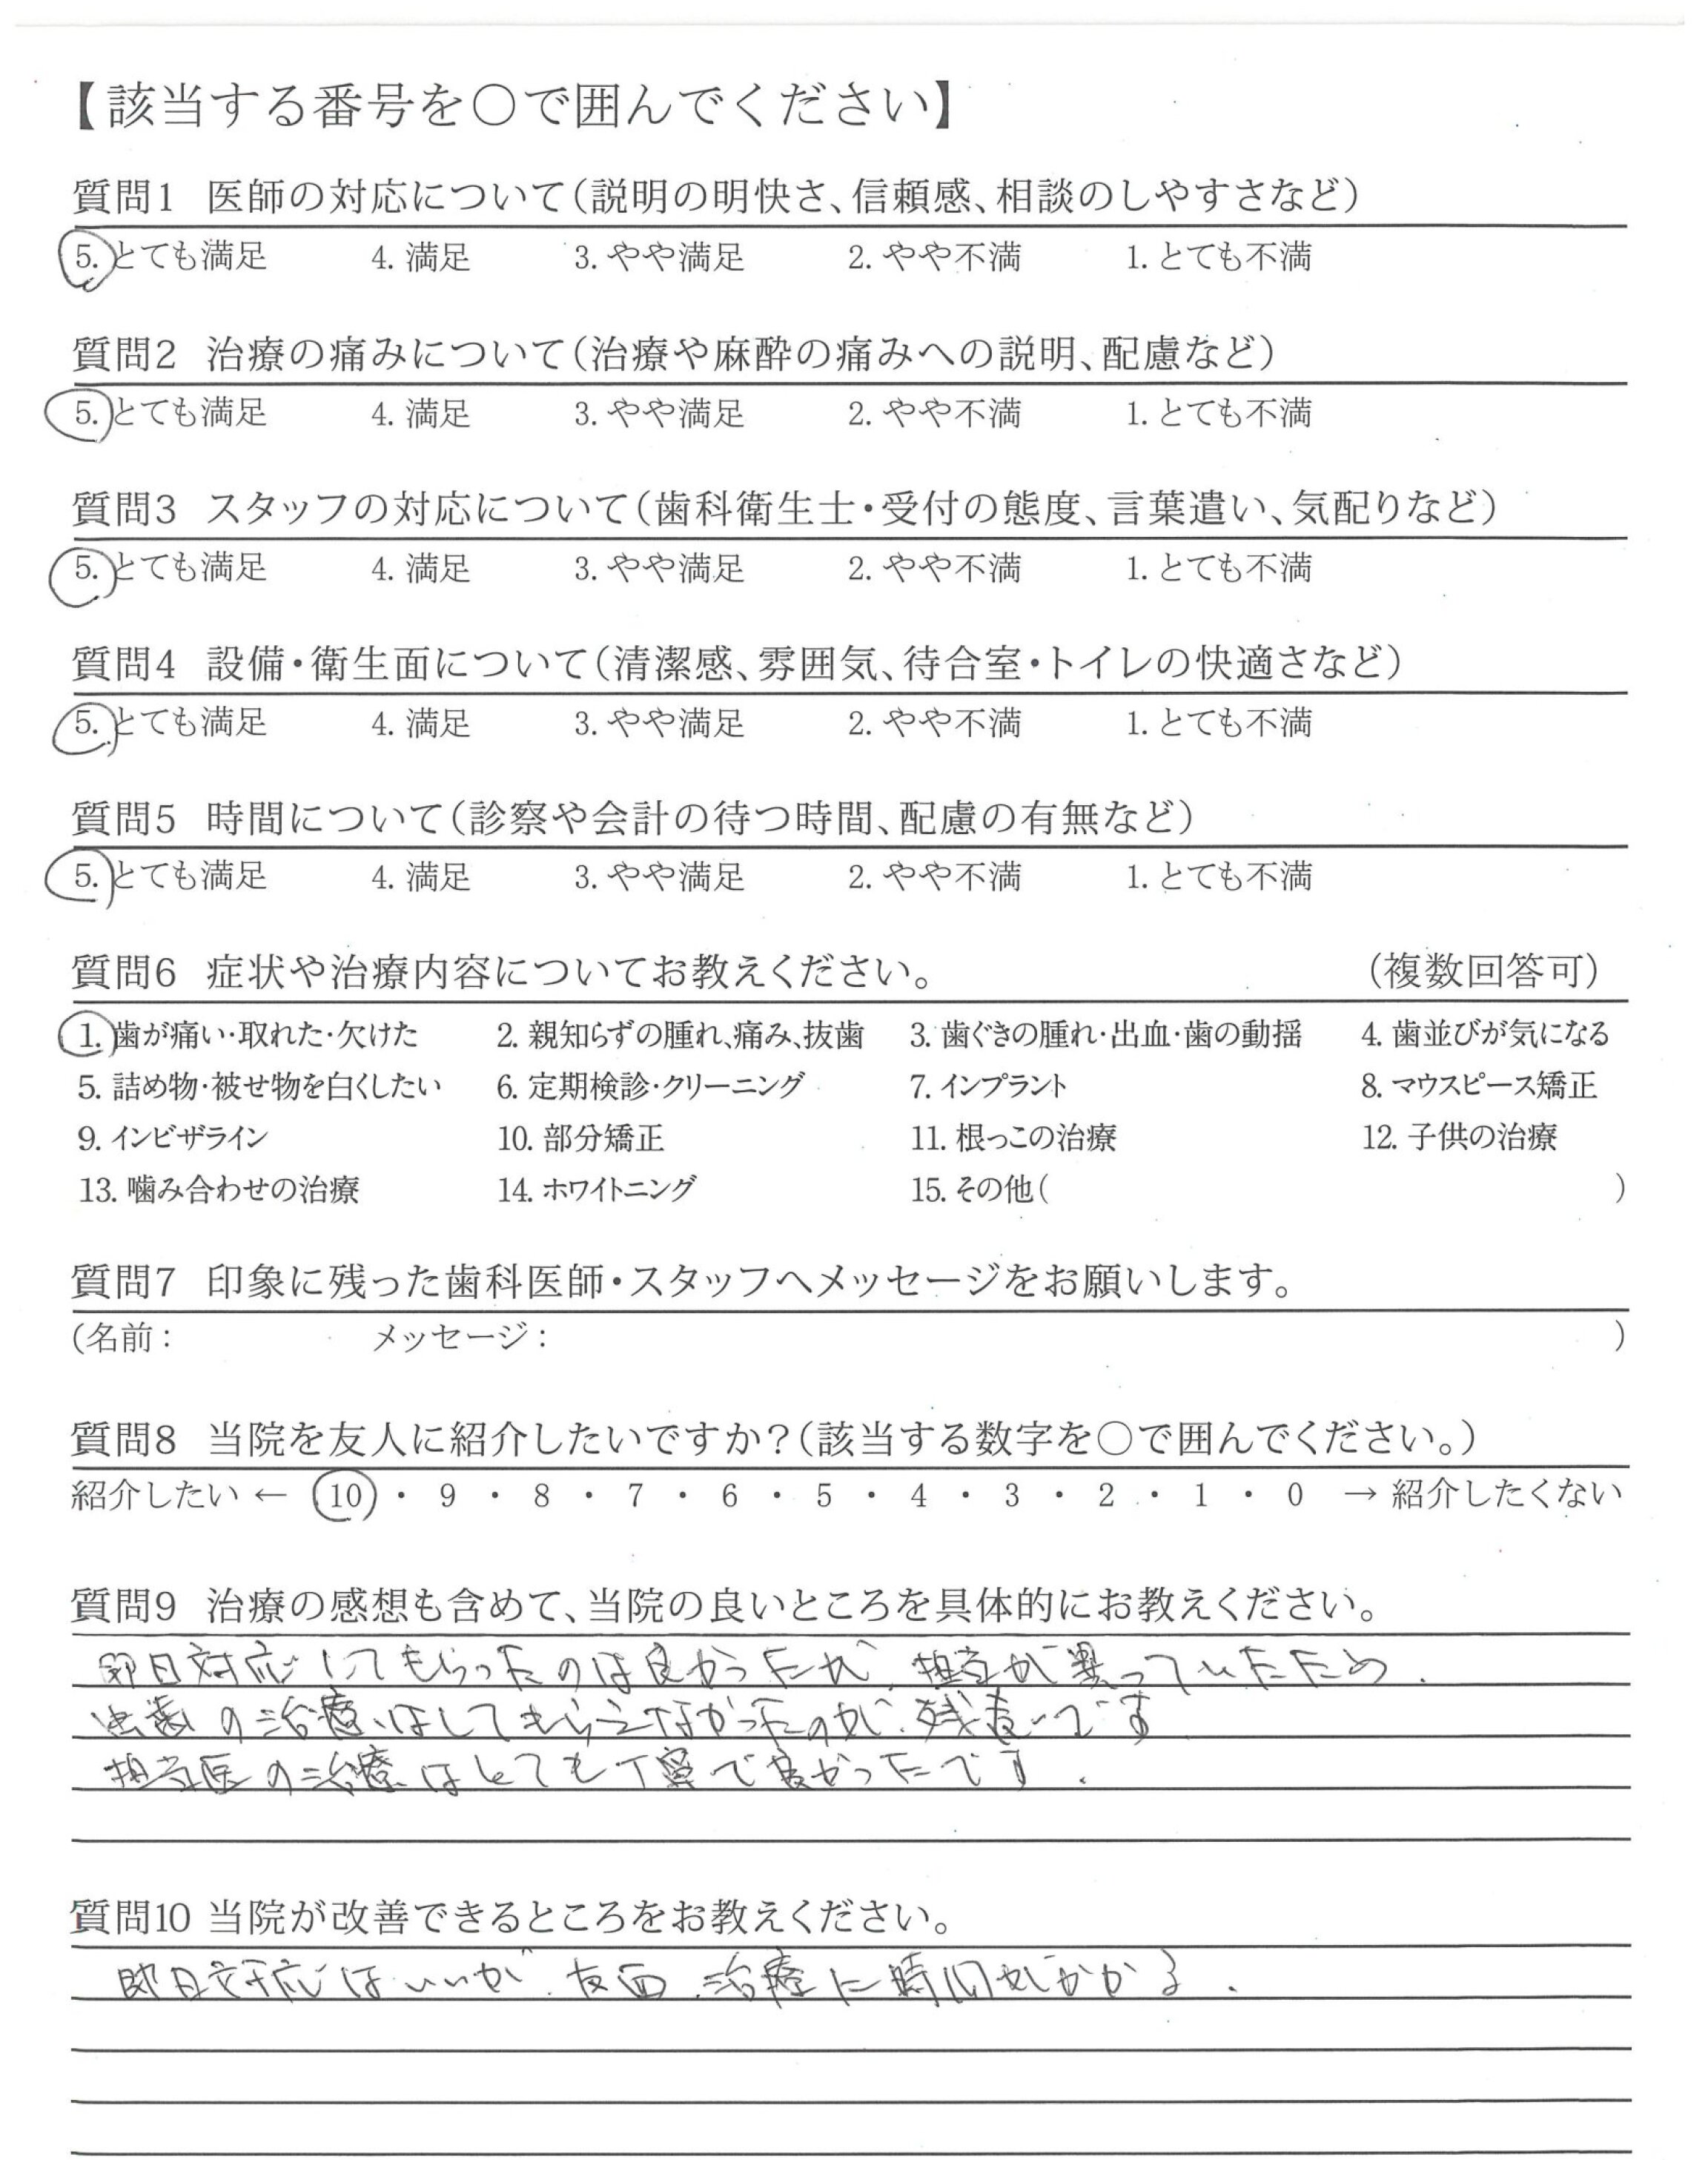 【該当する番号を○で囲んでください】
質問1 医師の対応について(説明の明快さ、信頼感、相談のしやすさなど)
5. とても満足 4. 満足 3. やや満足 2. やや不満 1. とても不満
質問2 治療の痛みについて(治療や麻酔の痛みへの説明、配慮など)
5. とても満足 4. 満足 3. やや満足 2. やや不満 1. とても不満
質問3 スタッフの対応について(歯科衛生士・受付の態度、言葉遣い、気配りなど)
5. とても満足 4. 満足 3. やや満足 2. やや不満 1. とても不満
質問4 設備・衛生面について(清潔感、雰囲気、待合室・トイレの快適さなど)
5. とても満足 4. 満足 3. やや満足 2. やや不満 1. とても不満
質問5 時間について(診察や会計の待つ時間、配慮の有無など)
5. とても満足 4. 満足 3. やや満足 2. やや不満 1. とても不満
質問6 症状や治療内容についてお教えください。 (複数回答可)
1. 歯が痛い・取れた・欠けた 2. 親知らずの腫れ、痛み、抜歯 3. 歯ぐきの腫れ・出血・歯の動揺 4. 歯並びが気になる
5. 詰め物・被せ物を白くしたい 6. 定期検診・クリーニング 7. インプラント 8. マウスピース矯正
9. インビザライン 10. 部分矯正 11. 根っこの治療 12. 子供の治療
13. 噛み合わせの治療 14. ホワイトニング 15. その他( )
質問7 印象に残った歯科医師・スタッフへメッセージをお願いします。
(名前: メッセージ: )
質問8 当院を友人に紹介したいですか?(該当する数字を○で囲んでください。)
紹介したい ← 10 ・ 9 ・ 8 ・ 7 ・ 6 ・ 5 ・ 4 ・ 3 ・ 2 ・ 1 ・ 0 → 紹介したくない
質問9 治療の感想も含めて、当院の良いところを具体的にお教えください。
即日対応してもらったのは良かったが、担当が異っていたため、
虫歯の治療はしてもらえなかったのが、残念です
担当医の治療はとても丁寧で良かったです。
質問10 当院が改善できるところをお教えください。
即日対応はいいが、反面、治療に時間がかかる。